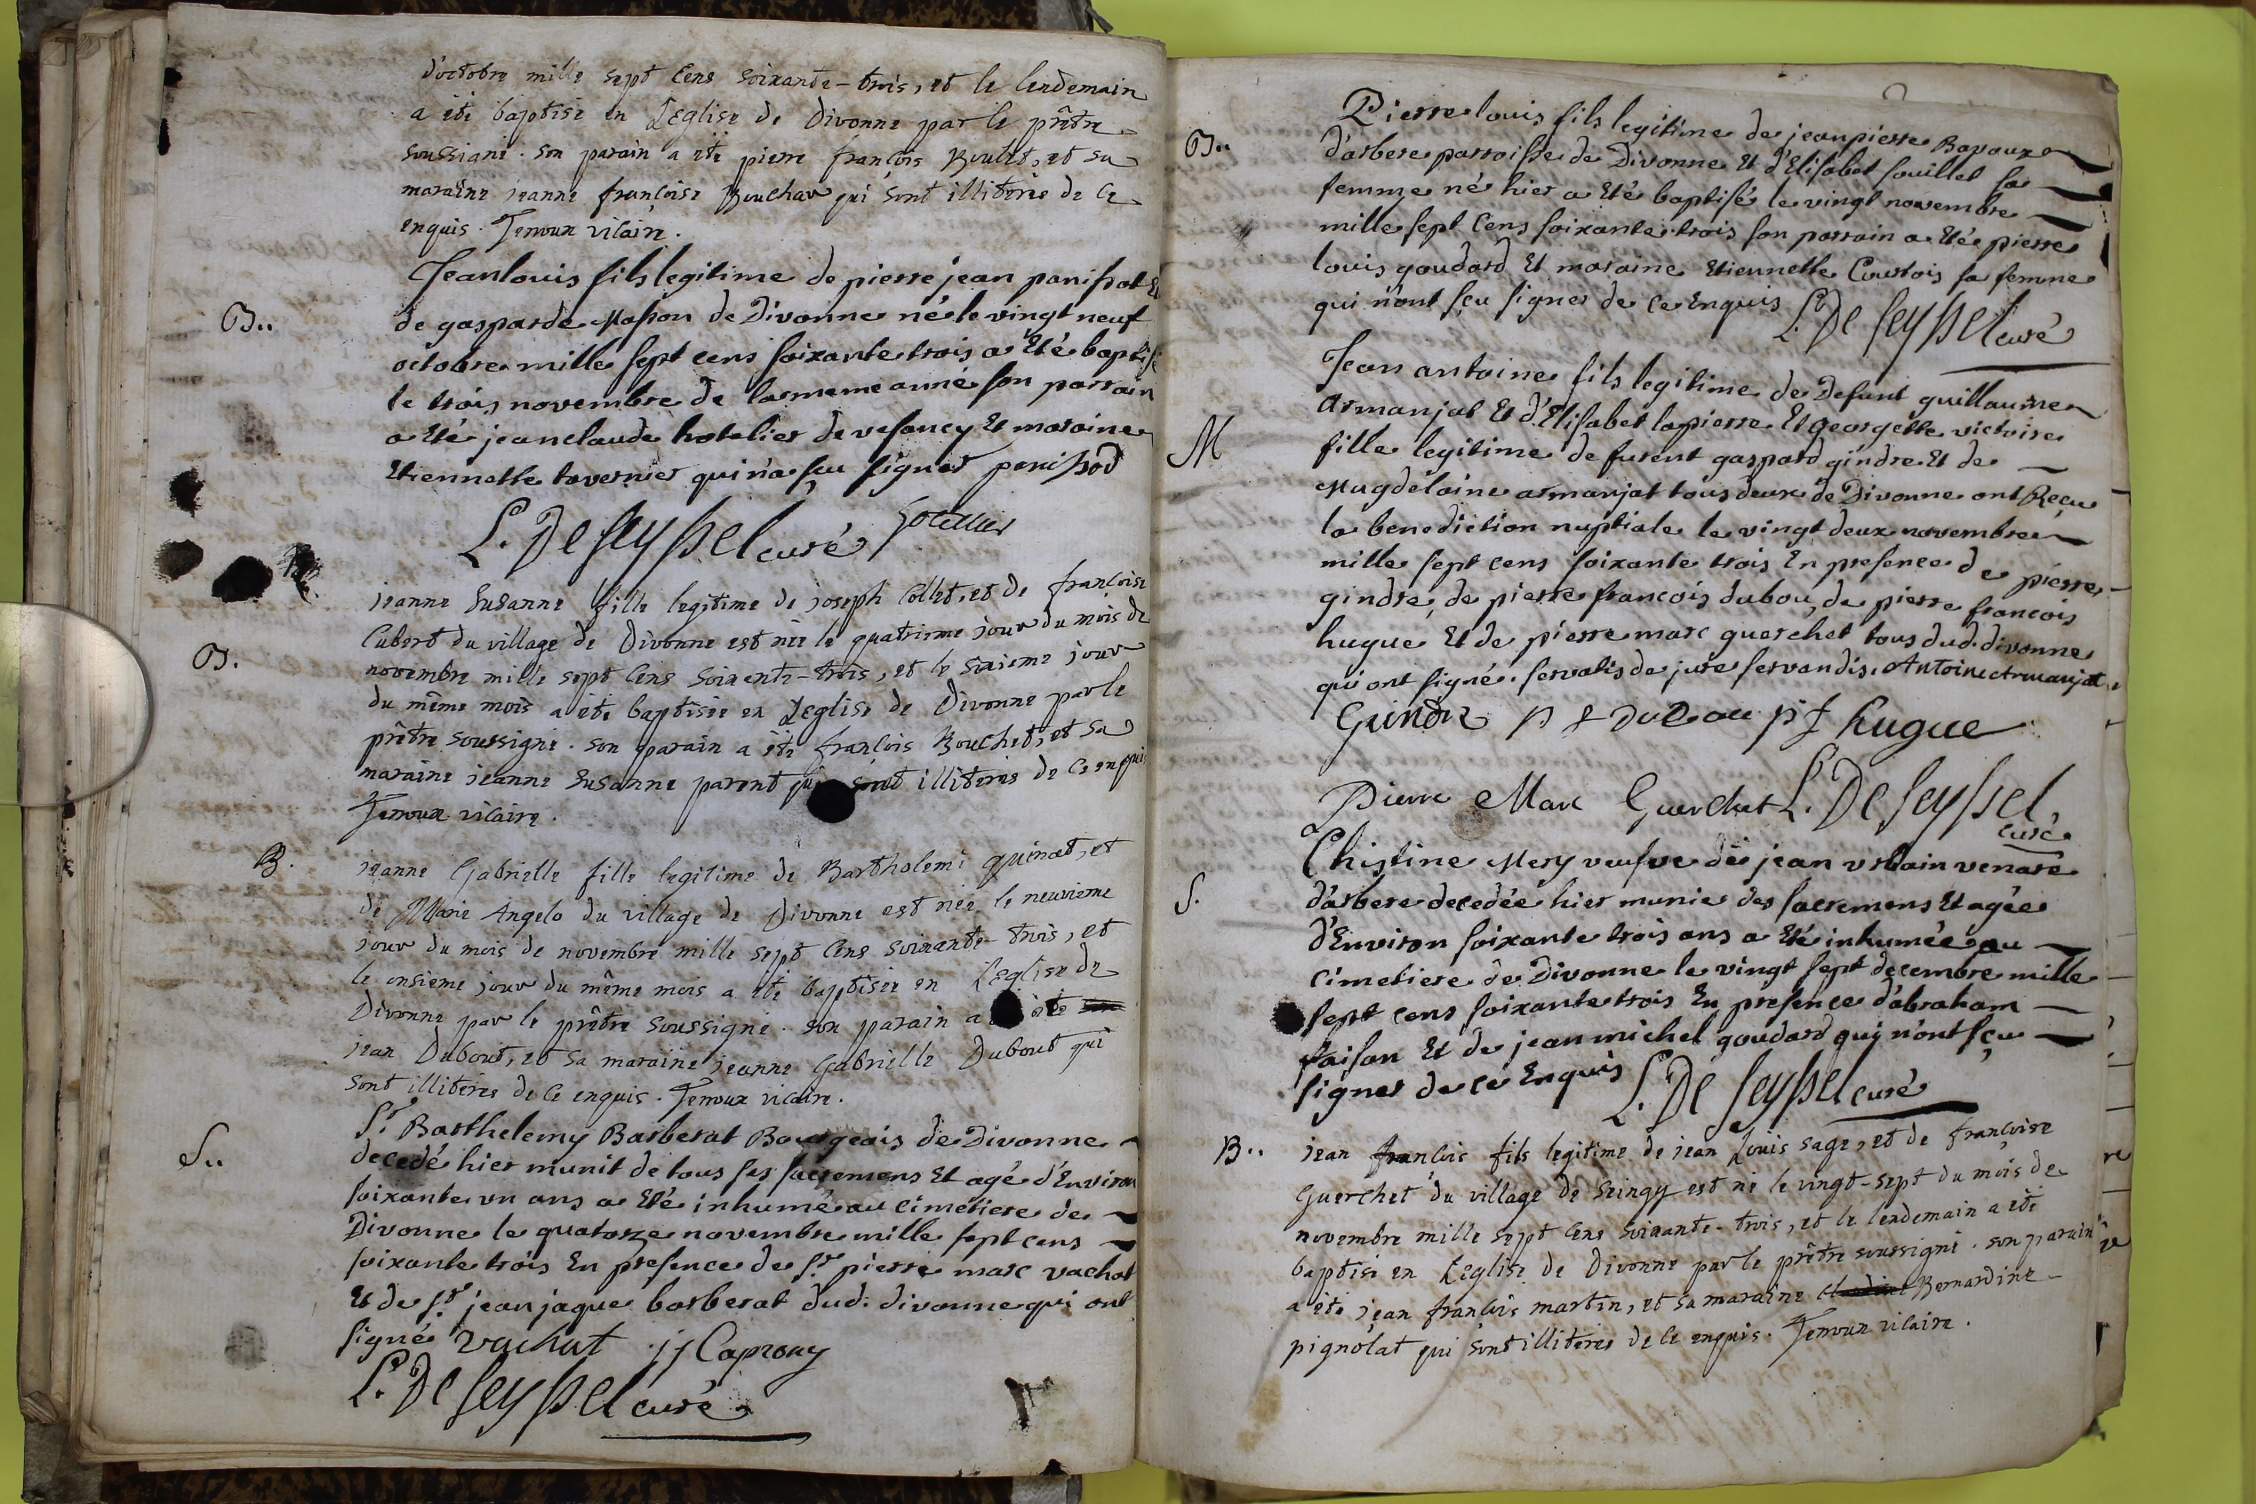 d'octobre mille sept cens soixante-trois, et le lendemain
a été baptisé en L'Eglise de Divonne par le prêtre
soussigné. son parain a été pierre françois Boulet, et sa
maraine jeanne françoise Bouchar qui sont illiterés de ce
enquis. Jenoux vicaire.
B..
Jean louis fils legitime de pierre jean panissot Et
de gasparde Masson de Divonne né le vingt neuf
octobre mille sept cens soixante trois a Eté baptisé
le trois novembre de la meme anné son parrain
a Eté jean claude hotelier de vesancy Et maraine
Etiennette tavernier qui n'a sçu signer panissod
L. De Seyssel curé hotellier
B.
jeanne Susanne fille legitime de joseph Collet, et de françoise
Cubert du village de Divonne est née le quatrieme jour du mois de
novembre mille sept cens soixente-trois, et le sixieme jour
du même mois a été baptisée en L'eglise de Divonne par le
prêtre soussigné. son parain a été françois Bouchet, et sa
maraine jeanne Susanne parent qui sont illiterés de ce enquis
Jenoux vicaire.
B.
jeanne Gabrielle fille legitime de Bartholemi quinat, et
de Marie Angelo du village de Divonne est née le neuvieme
jour du mois de novembre mille sept cens soixante-trois, et
le onsieme jour du même mois a été baptisée en L'eglise de
Divonne par le prêtre soussigné. son parain a été
jean Dubout, et sa maraine jeanne Gabrielle Dubout qui
sont illiterés de ce enquis. Jenoux vicaire.
S..
Sr. Barthelemy Barberat Bourgeois de Divonne
decedé hier munit de tous ses sacremens Et agé d'Environ
soixante un ans a Eté inhumé au cimetiere de
Divonne le quatorze novembre mille sept cens
soixante trois En presence de Sr pierre marc vachat
Et de Sr jean jaque barberat dud. divonne qui ont
signé vachat jj Caprony
L. De Seyssel curé
B..
Pierre louis fils legitime de jean pierre Bavoux
d'arbere parroisse de Divonne Et d'Elisabet souillet sa
femme né hier a Eté baptisé le vingt novembre
mille sept cens soixante trois son parrain a Eté pierre
louis goudard Et maraine Etiennette Courtois sa femme
qui n'ont sçu signer de ce Enquis L. De Seyssel curé
M
Jean antoine fils legitime de Defunt guillaume
armanjat Et d'Elisabet lapierre Et georgette victoire
fille legitime de furent gaspard gindre Et de
Magdelaine armanjat tous deux de Divonne ont Recu
la benediction nuptiale le vingt deux novembre
mille sept cens soixante trois En presence de pierre
gindre, de pierre francois dubou, de pierre francois
hugue Et de pierre marc guerchet tous dud. divonne
qui ont signé. servatis de jure servandis. Antoine Armanjat
Guindre p f Dubou p f hugue
Pierre Marc Guerchet L. De Seyssel
curé
S.
Chistine Mery veufve de jean vrbain venare
d'arbere decedée hier munie des sacremens Et agée
d'Environ soixante trois ans a Eté inhumée au
cimetiere de Divonne le vingt sept decembre mille
sept cens soixante trois En presence d'abraham
faison Et de jean michel goudard qui n'ont sçu
signer de ce Enquis L. De Seyssel curé
B..
jean françois fils legitime de jean Louis sage, et de françoise
Guerchet du village de Seingy est né le vingt-sept du mois de
novembre mille sept cens soixante-trois, et le lendemain a été
baptisé en L'eglise de Divonne par le prêtre soussigné. son parain
a été jean françois martin, et sa maraine Bernardine
pignolat qui sont illiterés de ce enquis. Jenoux vicaire.